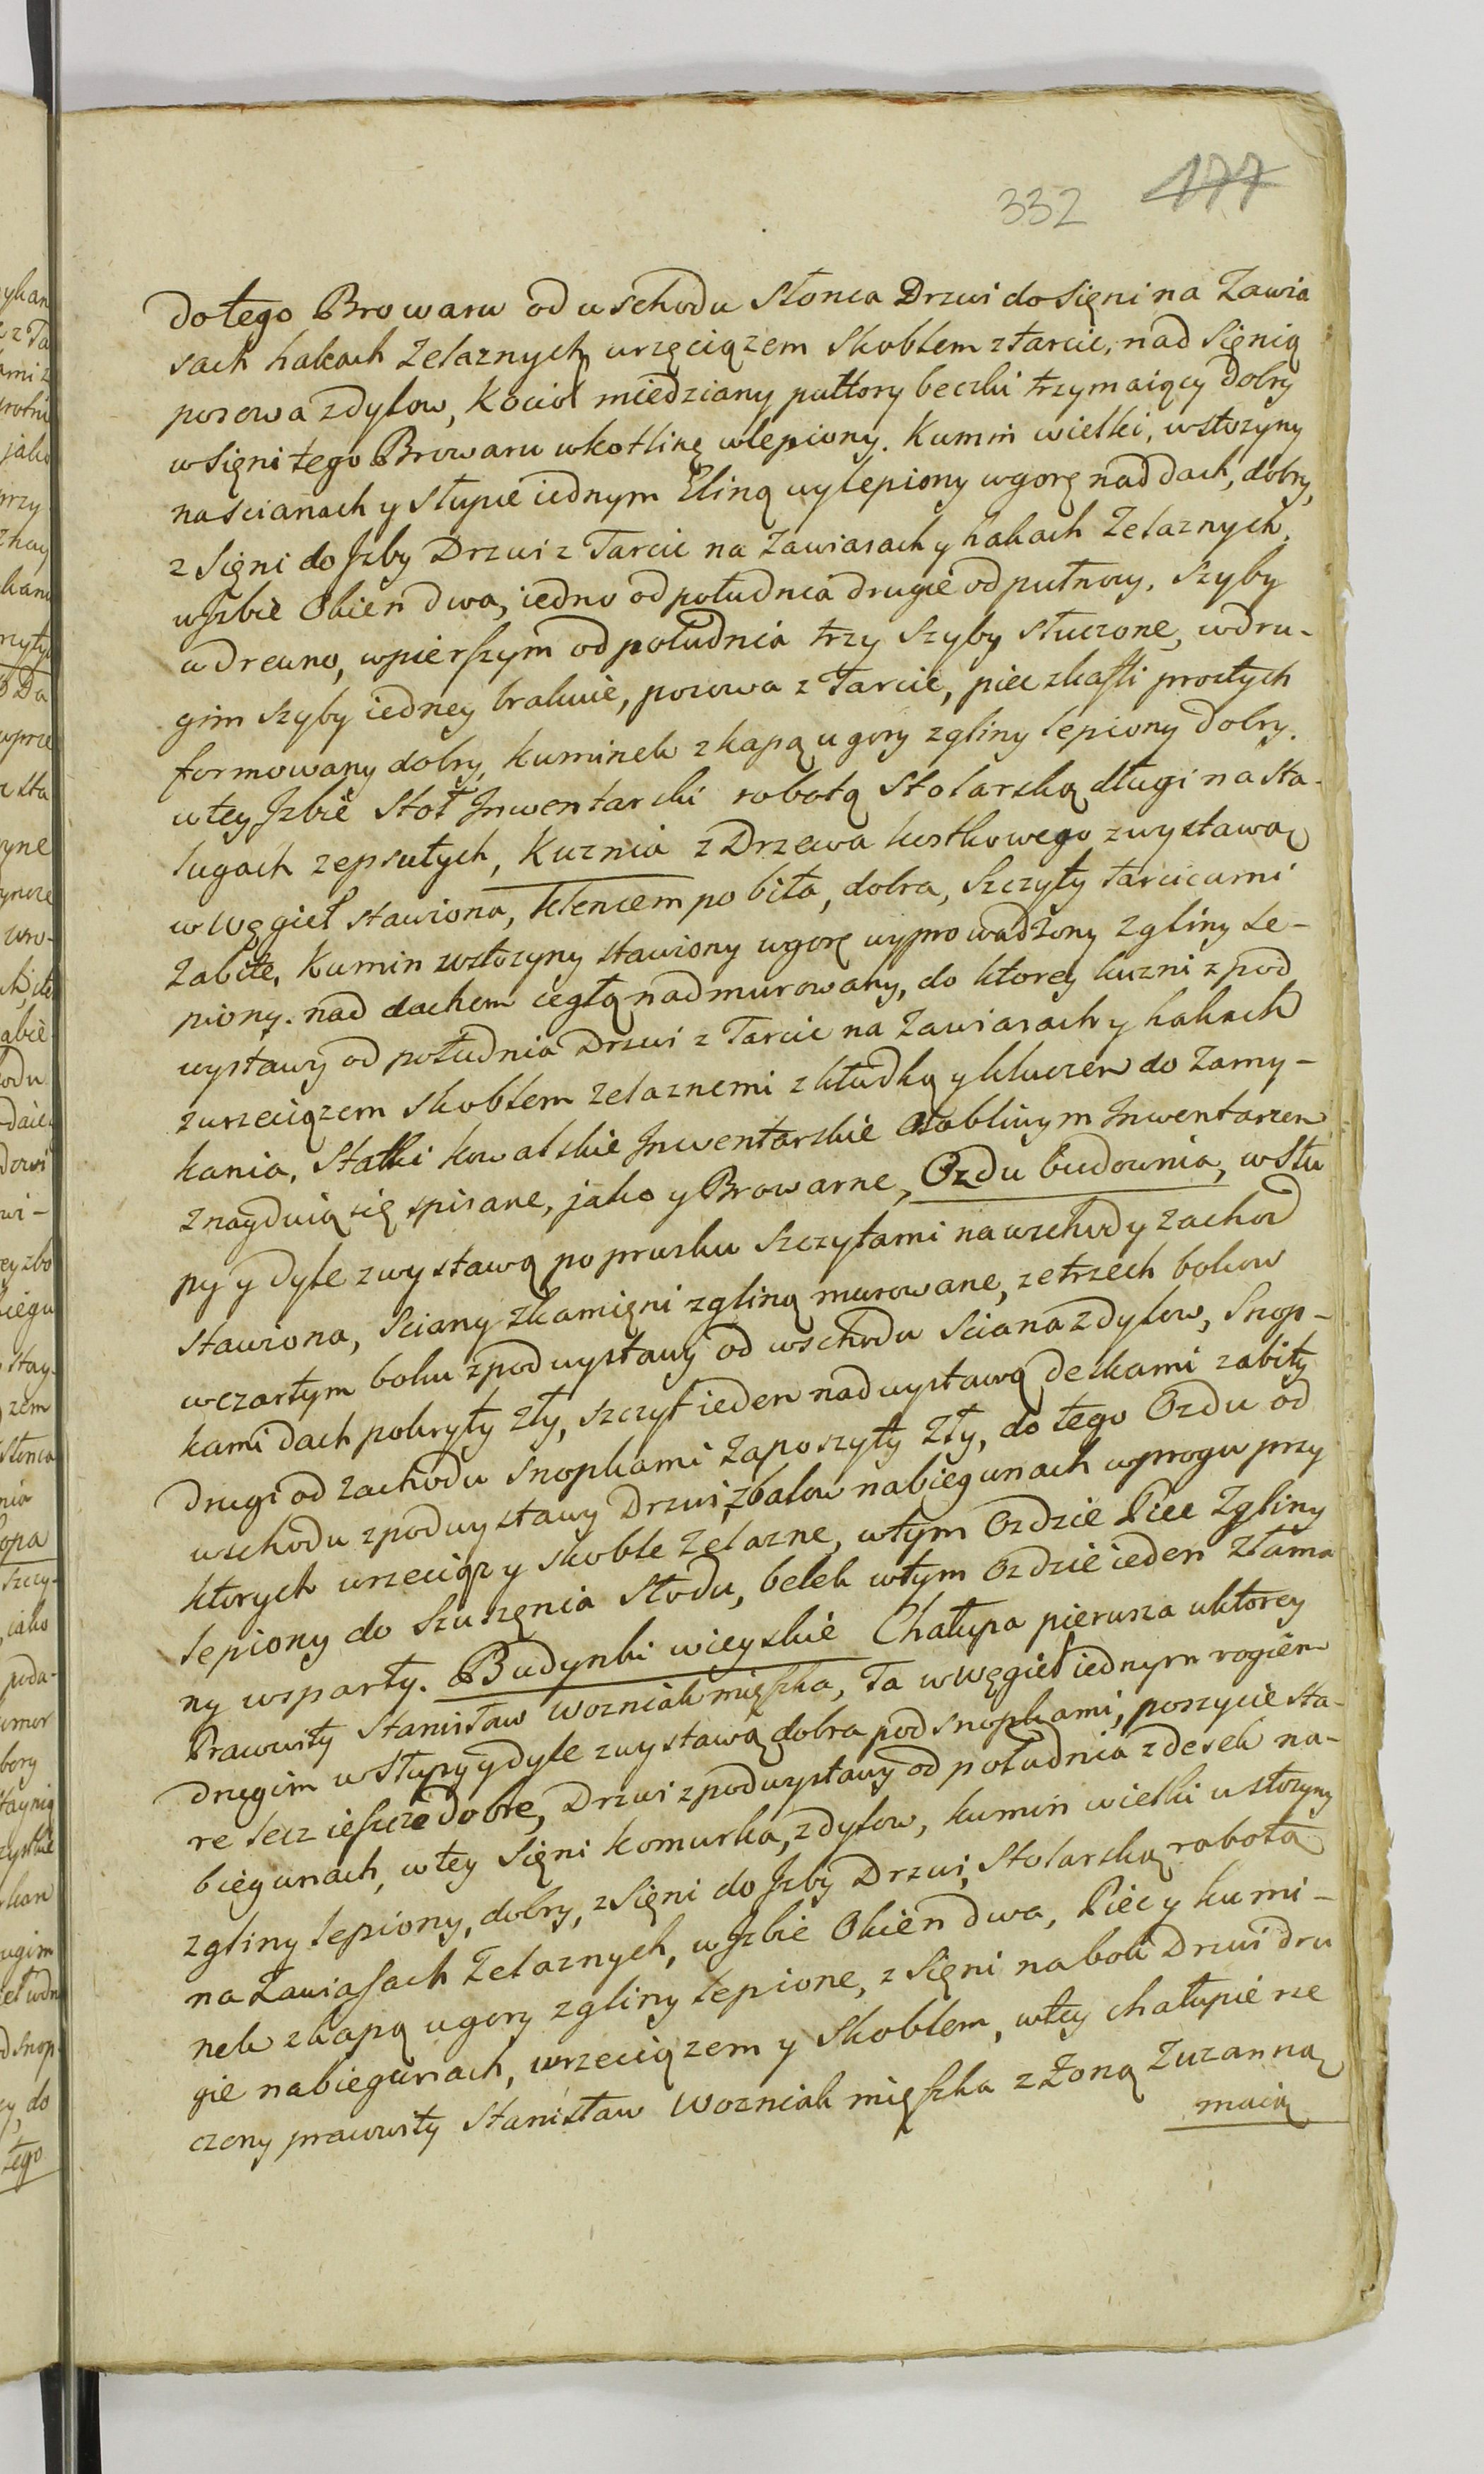 332 177
do tego Browaru od wschodu Słonca Drzwi do Sięni na Zawia
sach hakach Zelaznych wrzęciązem Skoblem z tarcic, nad Sięnią
posowa z dylow, Kocioł miedziany pułtory beczki trzymaiący dobry
w Sięni tego Browaru w kotlinę wlepiony. Kumin wielki, w stozyny
na scianach y słupie iednym Gliną wylepiony w gorę nad dach, dobry,
z Sięni do Jzby Drzwi z Tarcic na Zawiasach y hakach Zelaznych,
w Jzbie Okien dwa, iedno od południa drugie od pułnocy, Szyby
w drewno, w pierszym od południa trzy Szyby stuczone, w dru-
gim Szyby iedney brakuie, posowa z Tarcic, piec z kafli prostych
formowany dobry, kuminek z kapą u gory z gliny lepiony dobry.
w tey Jzbie Stoł Jnwentarski robotą Stolarską długi na sta-
lugach zepsutych, Kuznia z Drzewa kostkowego z wystawą
w Węgieł stawiona, klencem pobita, dobra, Szczyty tarcicami
Zabite, Kumin w stozyny stawiony w gorę wyprowadzony z gliny le-
piony. nad dachem cegłą nadmurowany, do ktorey kuzni z pod
wystawy od południa Drzwi z Tarcic na Zawiasach y hakach
z wrzeciązem skoblem zelaznemi z kłudką y kluczem do Zamy-
kania, Statki kowalskie Jnwentarskie osobliwym Jnwentarzem
znayduią się spisane, jako y Browarne, Ozdu budownia, w Słu
py y dyle z wystawą po prusku szczytami na wschod y zachod
stawiona, Sciany z kamięni z gliną murowane, ze trzech bokow
w czartym boku z pod wystawy od wschodu sciana z dylow, Snop-
kami dach pokryty zły, szczyt ieden nad wystawą deskami zabity
drugi od zachodu snopkami zaposzyty zły, do tego Ozdu od
wschodu z pod wystawy Drzwi, z balow na biegunach w progu przy
ktorych wrzeciąz y skoble zelazne, w tym Ozdzie Piec z gliny
lepiony do Szuszęnia Słodu, belek w tym Ozdzie ieden złama
ny wsparty. Budynki wieyskie Chałupa pierwsza w ktorey
Prawwity Stanisław Wozniak mięszka, Ta w Węgieł iednym rogiem
drugim w słupy y dyle z wystawą dobra pod snopkami, poszycie sta-
re lecz ieszcze dobre, Drzwi z pod wystawy od południa z desek na-
biegunach, w tey Sięni komurka, z dylow, kumin wielki w stozyny
z gliny lepiony, dobry, z Sięni do Jzby Drzwi, Stolarską robotą
na Zawiasach Zelaznych, w Jzbie Okien dwa, Piec y kumi-
nek z kapą u gory z gliny lepione, z Sięni na bok Drzwi dru
gie na biegunach, wrzeciązem y Skoblem, w tey chałupie rze
czony prawwity Stanisław Wozniak mięszka z Zoną Zuzanną
maią